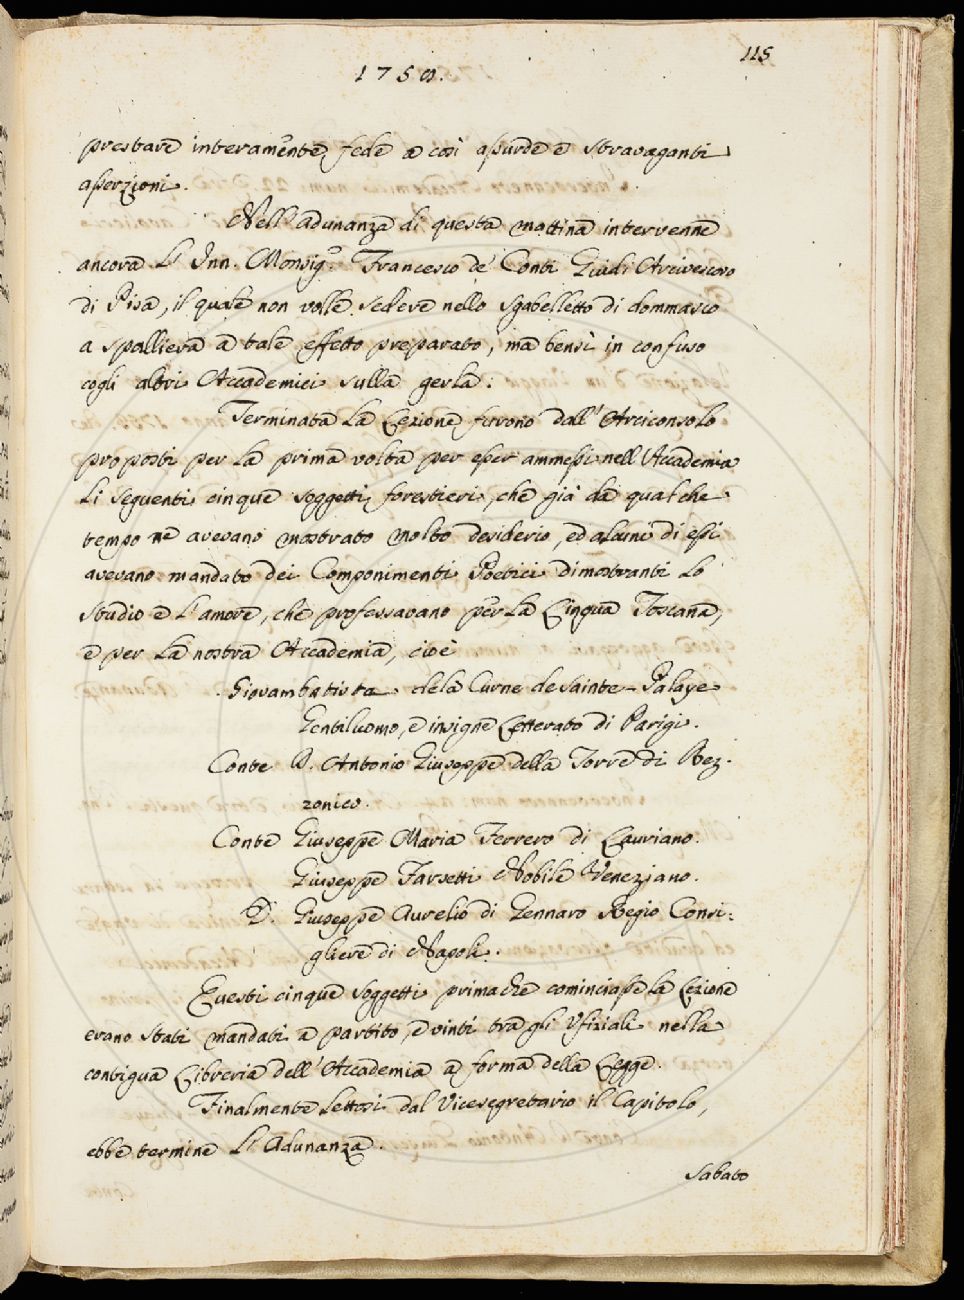 115
1750.
prestare interam.te fede a così assurde e stravaganti
asserzioni.
Nell'Adunanza di questa mattina intervenne
ancora L'Inn. Monsig.r Francesco de' Conti Guidi Arcivescovo
di Pisa, il quale non volle sedere nello Sgabelletto di dommasco
a spalliera a tale effetto preparato, ma bensì in confuso
cogli altri Accademici sulla gerla:
Terminata La Lezione furono dall'Arciconsolo
proposti per La prima volta per esser ammessi nell'Accademia
Li seguenti cinque soggetti forestieri, che già da qualche
tempo ne avevano mostrato molto desiderio, ed alcuni di essi
avevano mandato dei Componimenti Poetici dimostranti Lo
studio e L'amore, che professavano per La Lingua Toscana,
e per La nostra Accademia, cioè
Giovambatista de la Curne de Sainte-Palaye
Gentiluomo, e insigne Letterato di Parigi.
Conte D. Antonio Giuseppe della Torre di Rez-
zonico.
Conte Giuseppe Maria Ferrero di Lauriano.
Giuseppe Farsetti Nobile Veneziano.
D. Giuseppe Aurelio di Gennaro Regio Consi:
gliere di Napoli.
Questi cinque soggetti prima che cominciasse La Lezione
erano stati mandati a partito, e vinti tra gli Ufiziali nella
contigua Libreria dell'Accademia a forma della Legge.
Finalmente Lettosi dal Vicesegretario il Capitolo,
ebbe termine L'Adunanza.
Sabato